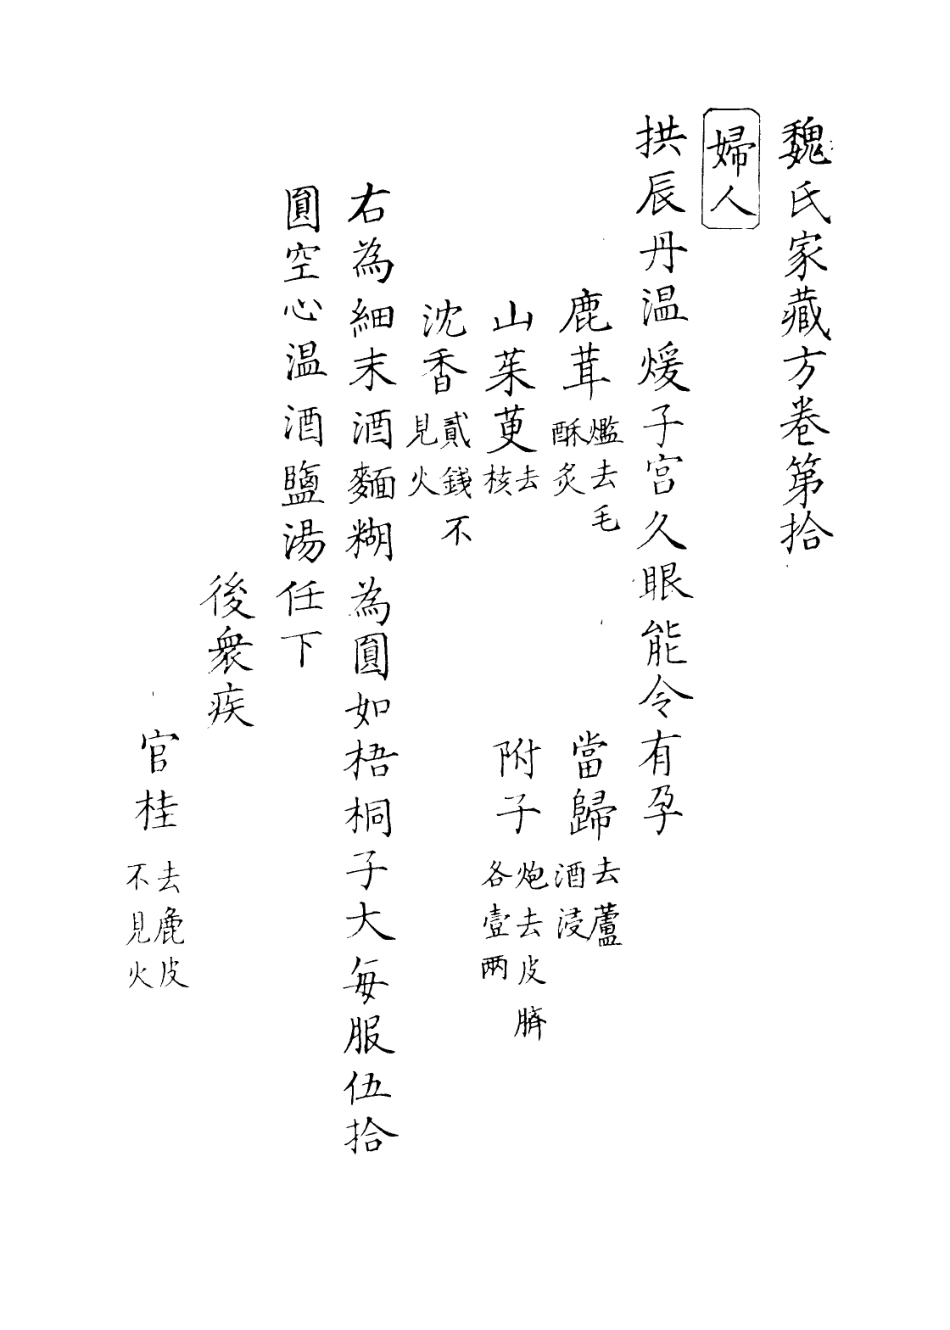 魏氏家藏方卷第拾
婦人
拱辰丹温煖子宮久眼能令有孕
鹿茸爁去毛酥炙 當歸去蘆酒浸
山茱萸去核 附子炮去皮臍各壹两
沈香貳錢不見火
右為細末酒麵糊為圓如梧桐子大每服伍拾
圓空心温酒鹽湯任下
後衆疾
官桂去麁皮不見火